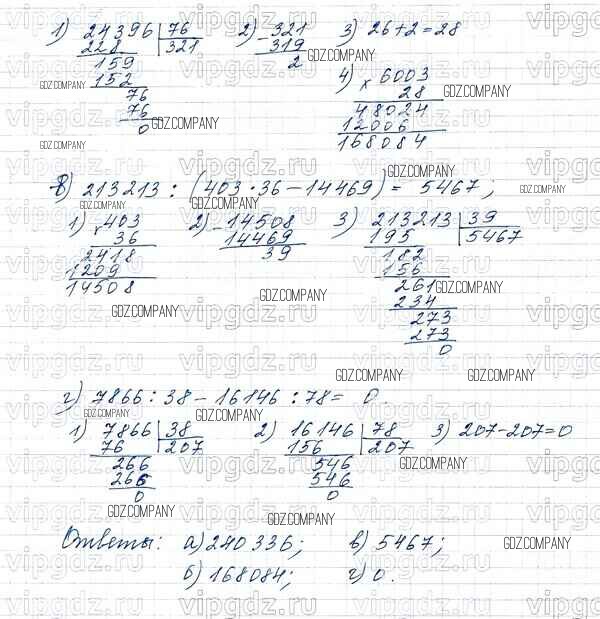 1) 24396 | 76   2) - 321   3) 26+2=28
228 | 321   319
159   2
152   4) × 6003
76   28
76   48024
0   12006
168084
в) 213213 : (403 · 36 - 14469) = 5467;
1) × 403   2) - 14508   3) 213213 | 39
36   14469   195 | 5467
2418   39   182
1209   156
14508   261
234
273
273
0
г) 7866 : 38 - 16146 : 78 = 0.
1) 7866 | 38   2) 16146 | 78   3) 207-207=0
76 | 207   156 | 207
266   546
266   546
0   0
Ответы: а) 240336; в) 5467;
б) 168084; г) 0.
vipgdz.ru
GDZ.COMPANY